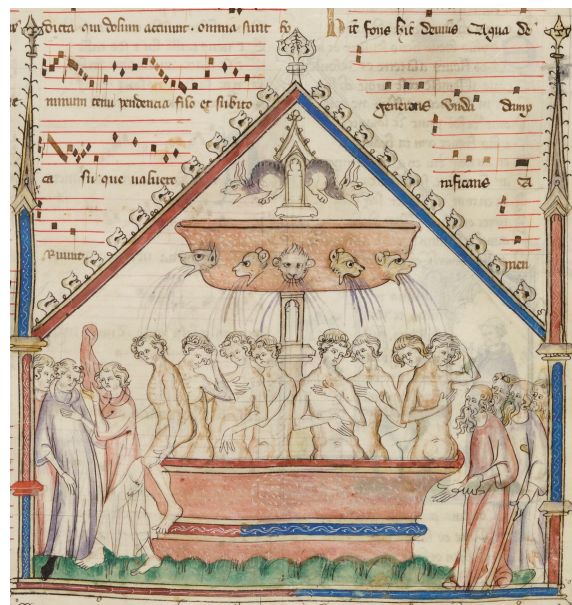 dicta qui dolium accinunt . omnia sunt ho
minum tenui pendencia filo et subito
ca su que ualuere
Ruunt
Hic fons hic deuius Aqua de
generans unda damp
nificans ta
men